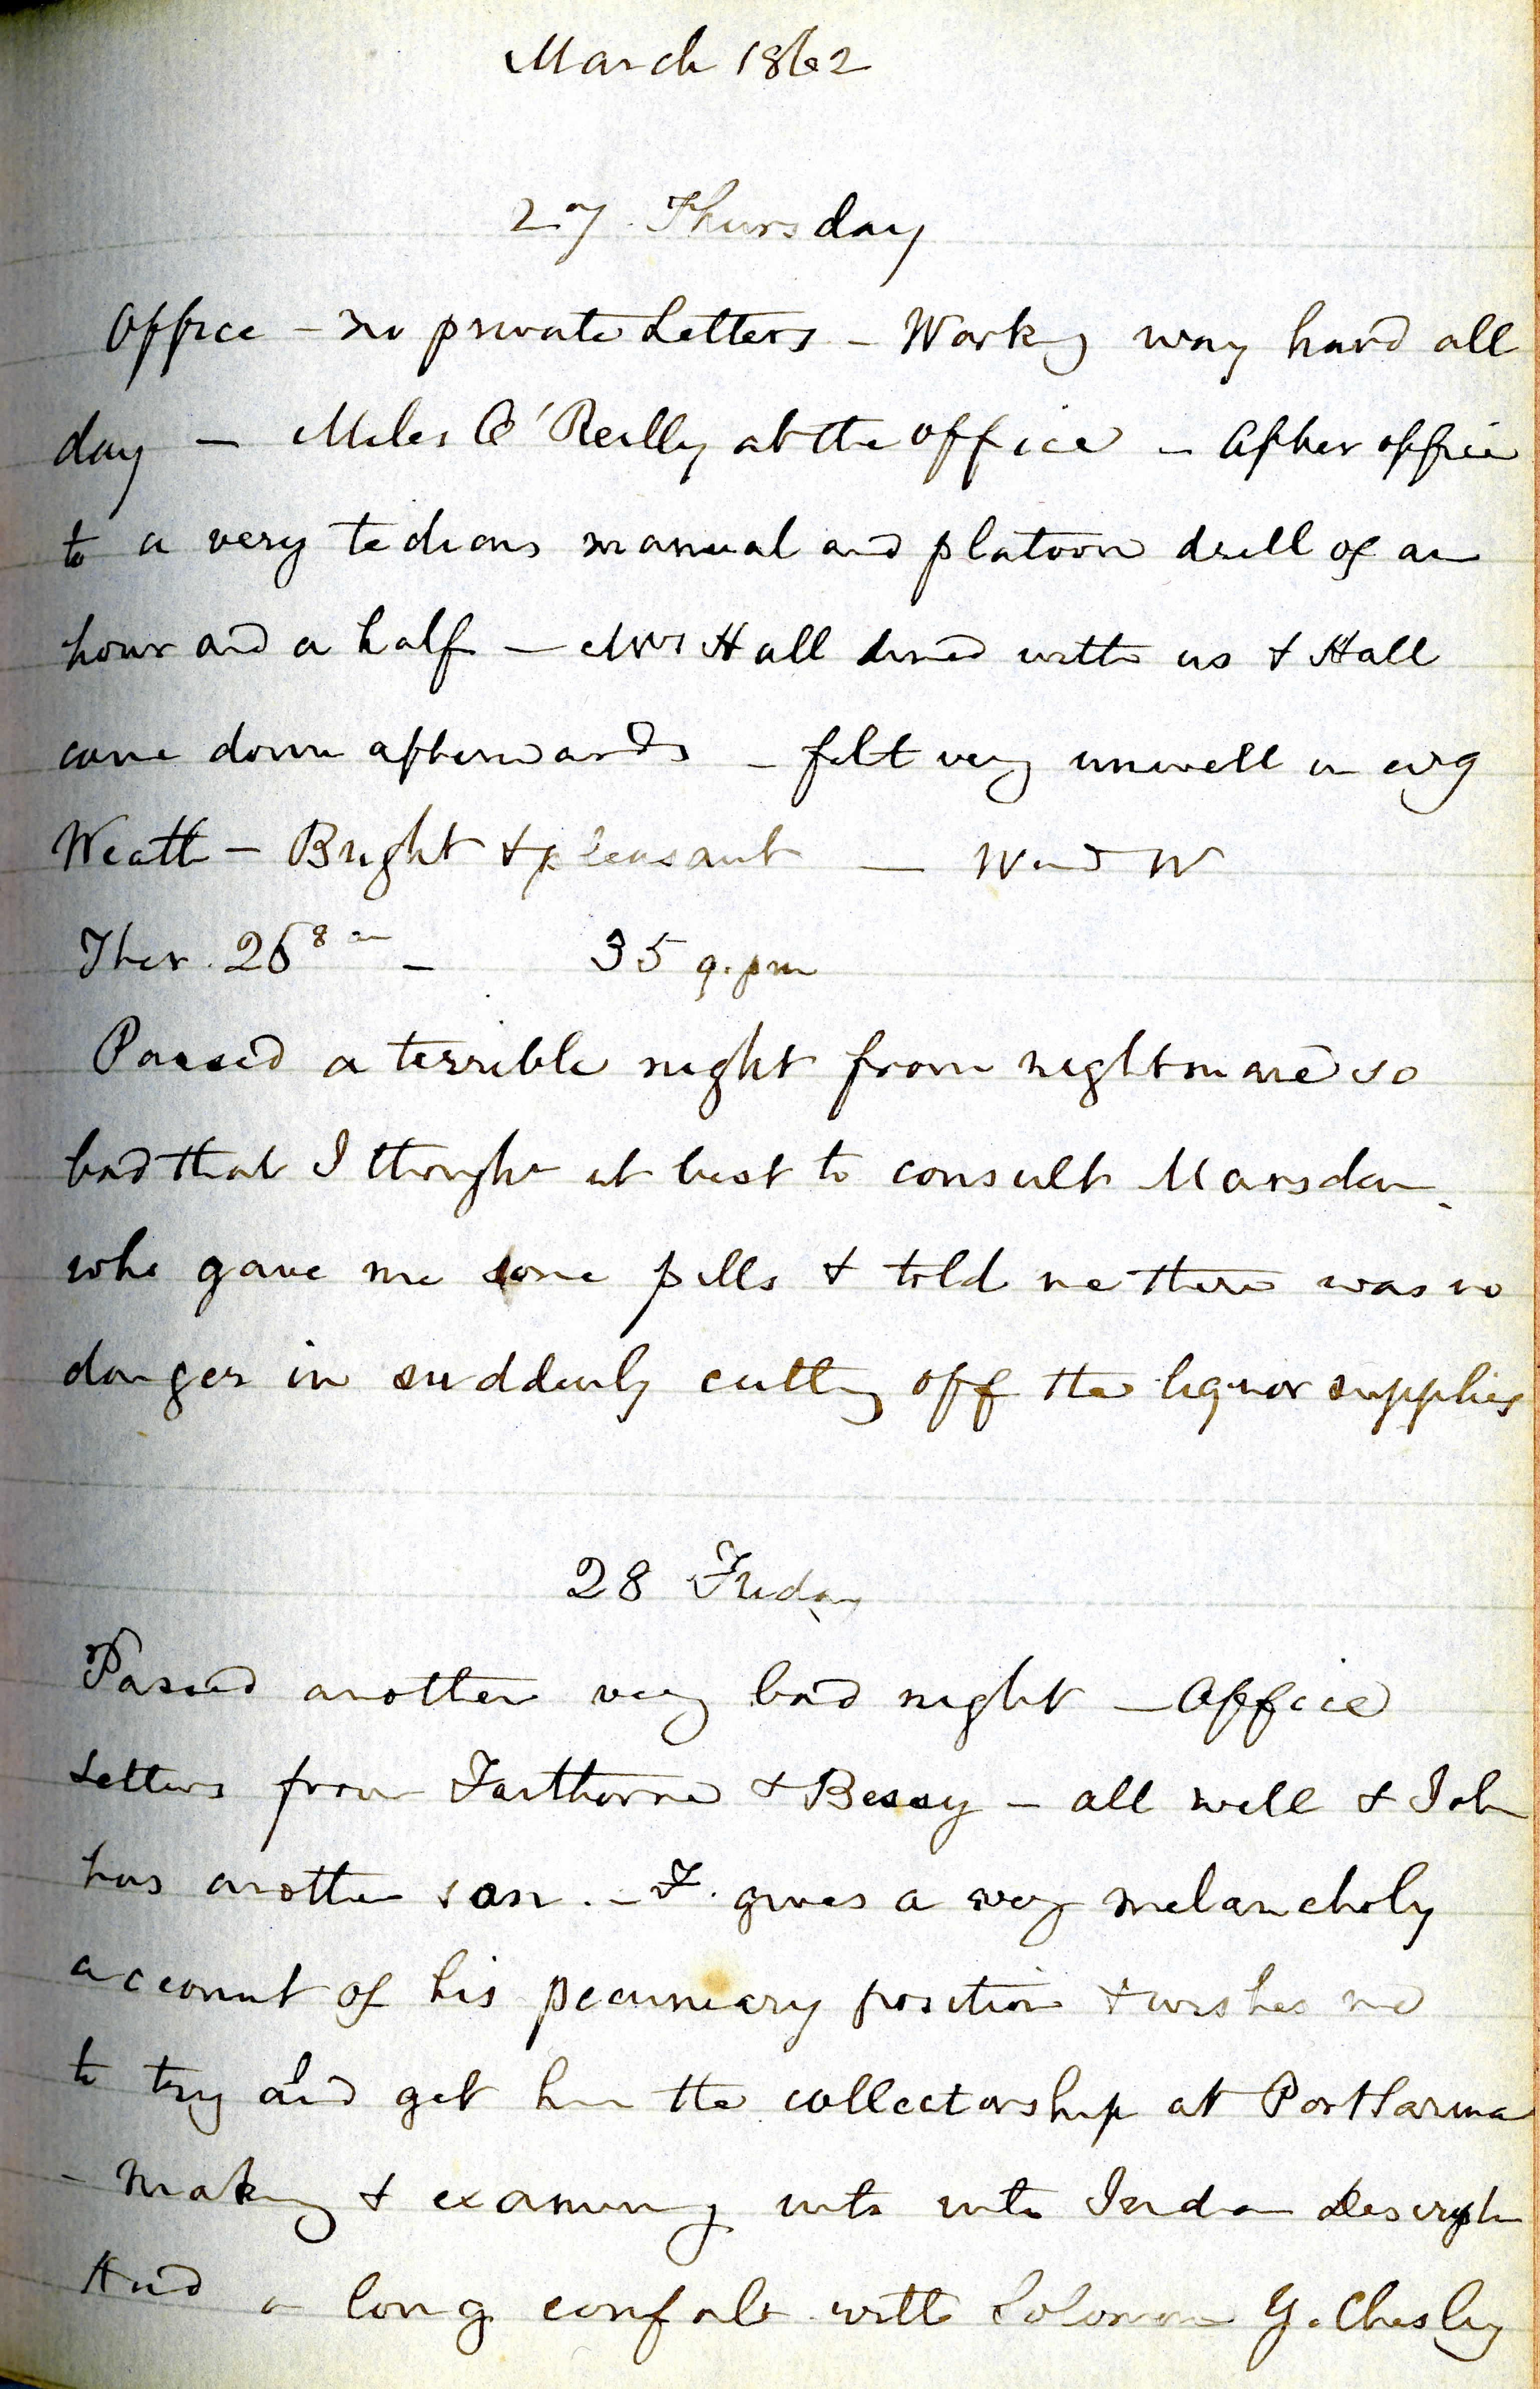 March 1862
27 Thursday
Office - no private Letters - Working very hard all
day - Miles O'Reilly at the office - After office
to a very tedious manual and platoon drill of an
hour and a half - Mrs Hall dined with us & Hall
came down afterwards - felt very unwell in evg
Weath - Bright & pleasant - Wind W
Ther. 26 8 am - 35 9. pm
Passed a terrible night from nightmare so
bad that I thought it best to consult Marsden
who gave me some pills & told me there was no
danger in suddenly cutting off the liquor supplies
28 Friday
Passed another very bad night - Office
Letters from Fairthorne & Bessy - all well & John
has another son. - F. gives a very melancholy
account of his pecuniary position & wishes me
to try and get him the collectorship at Port Sarnia
- Making & examining into Indian
Had a long confab with Solomon Y. Chesley